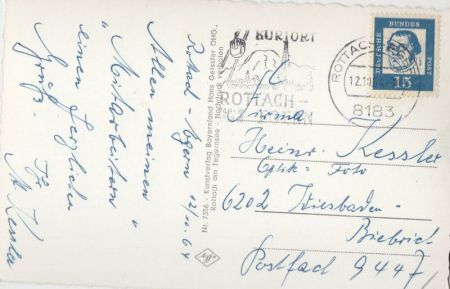 Rottach Egern 12/10.64
Allen meinen
"Mitarbeitern"
einen herzlichen
Gruß. Ihr
H. Kessler
Nr. 7356 - Kunstverlag Bayernland Hans Geissler OHG.,
Rottach am Tegernsee - Nachdruck verboten
Agfa
KURORT
ROTTACH-
ROTTACH-
12.10.64
8183
DEUTSCHE BUNDESPOST
15
Firma
Heinr. Kessler
Optik - Foto
6202 Wiesbaden-
Biebrich
Postfach 9447